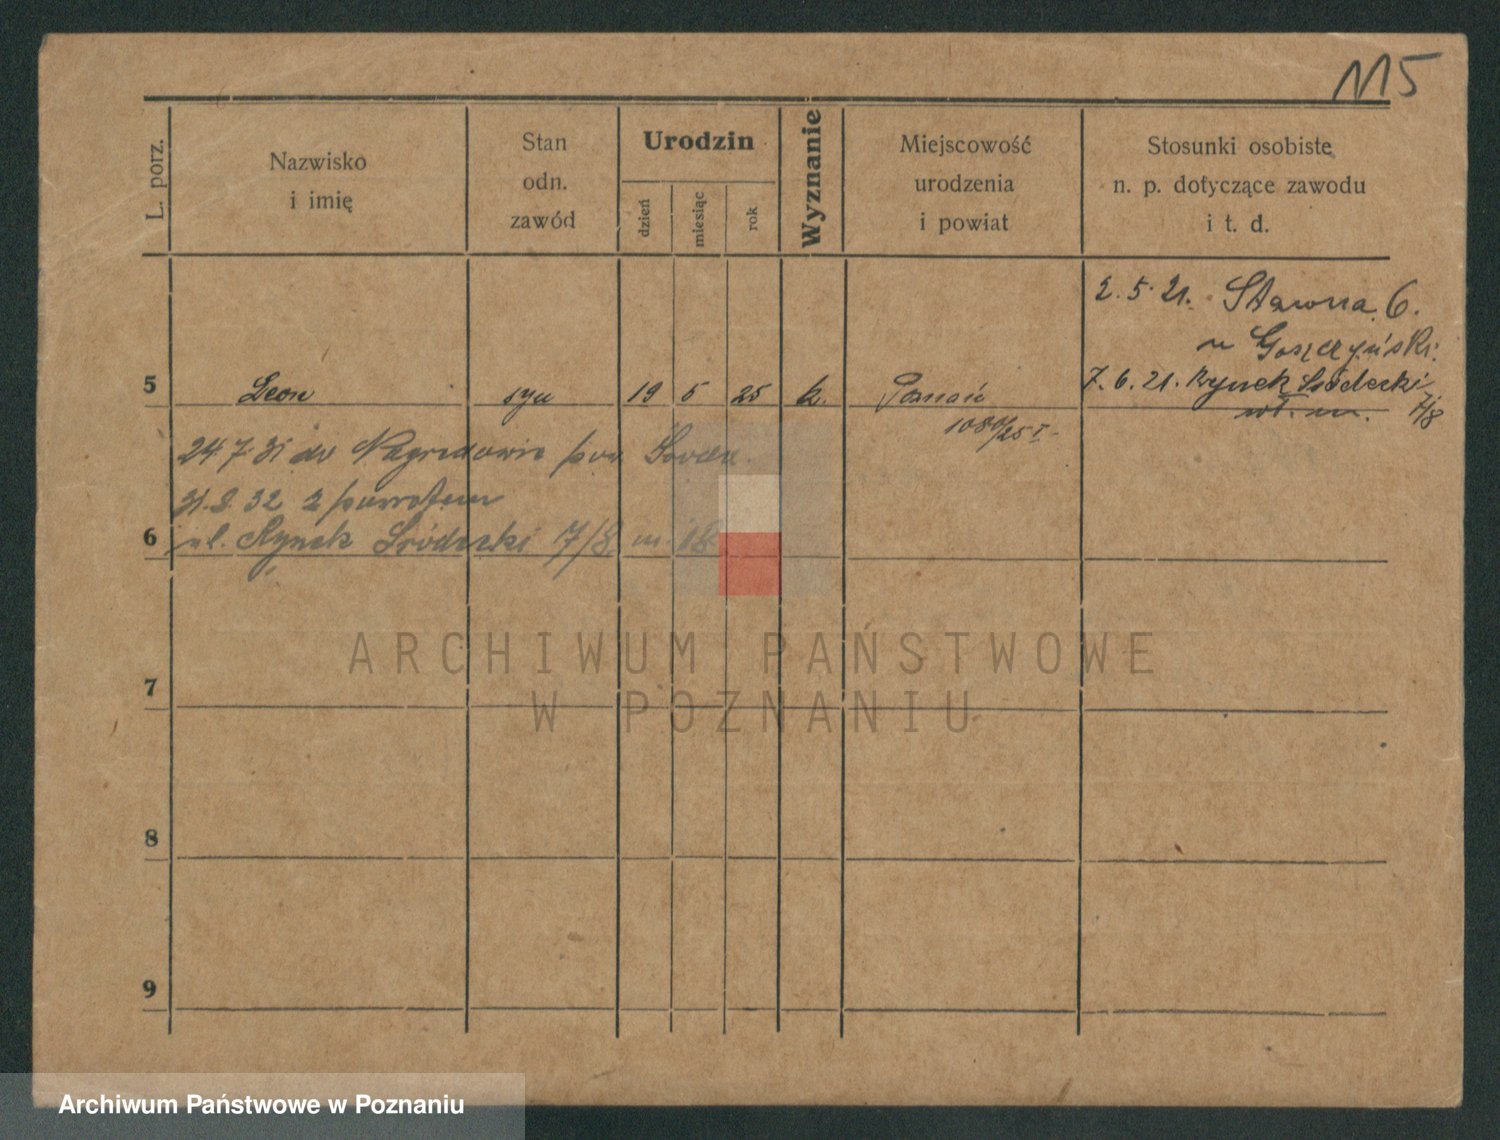 115
L. porz.
Nazwisko
i imię
Stan
odn.
zawód
Urodzin
dzień
miesiąc
rok
Wyznanie
Miejscowość
urodzenia
i powiat
Stosunki osobiste
n. p. dotyczące zawodu
i t. d.
2.5.21. Stawna 6.
u Goszczyński.
5 Leon syn 19 5 25 k. Poznań 7.6.21. Rynek Śródecki
7/8
24.7.31 do pow.
32 z powrotem
6 ul. Rynek Śródecki 17/8 m. 18
7
8
9
ARCHIWUM PAŃSTWOWE
W POZNANIU
Archiwum Państwowe w Poznaniu